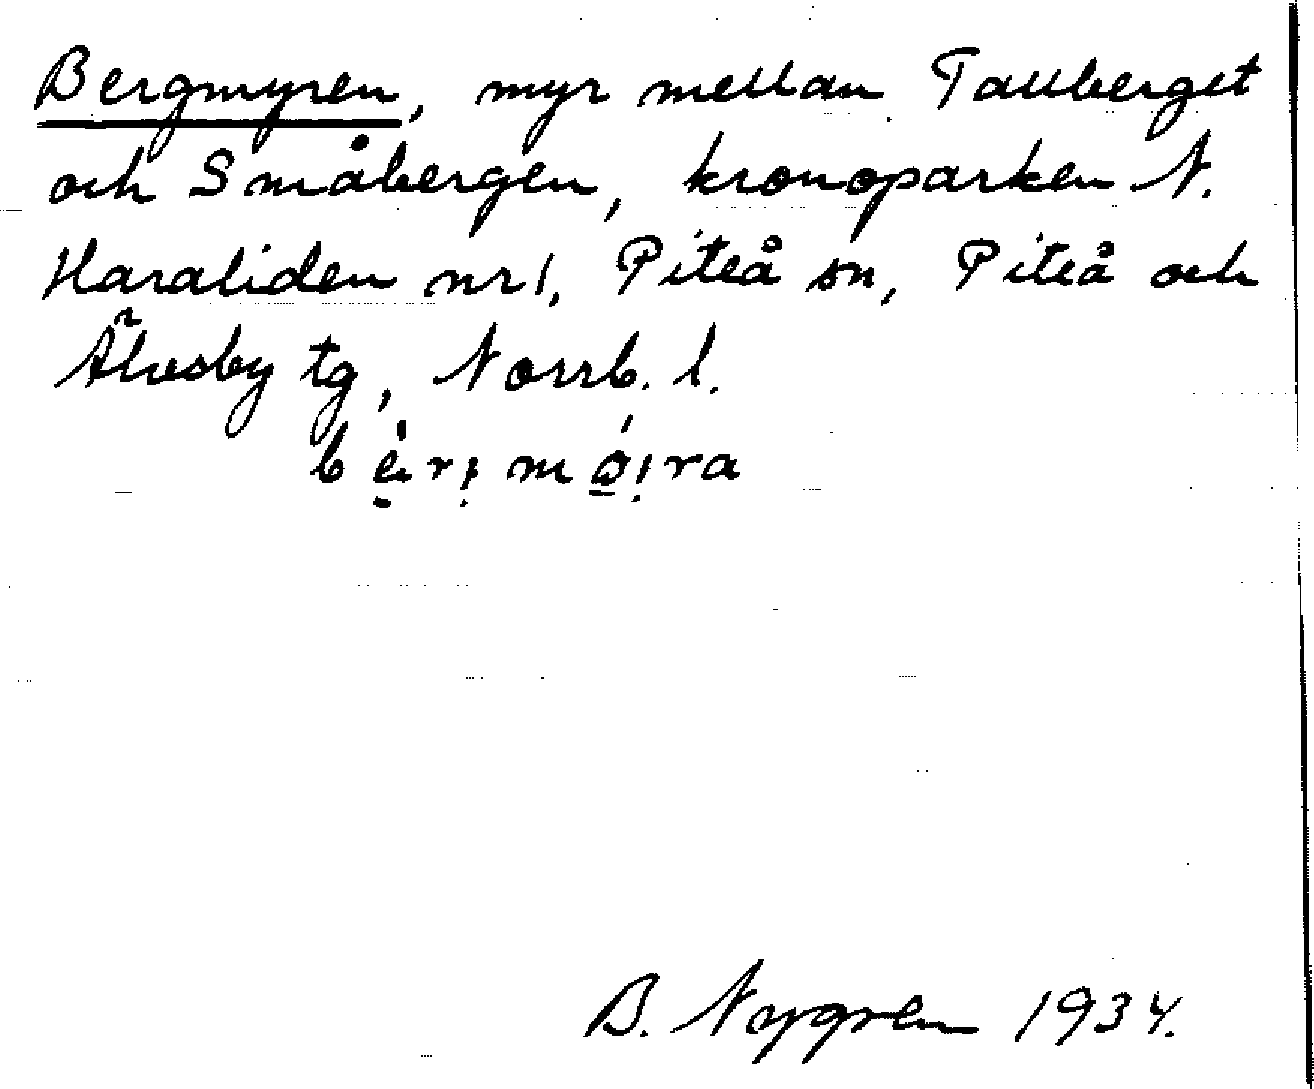 Bergmyren, myr mellan Tallberget
och Småbergen, kronoparken N.
Haraliden nr 1, Piteå sn, Piteå och
Älvsby tg, Norrb. l.
B. Nygren 1934.